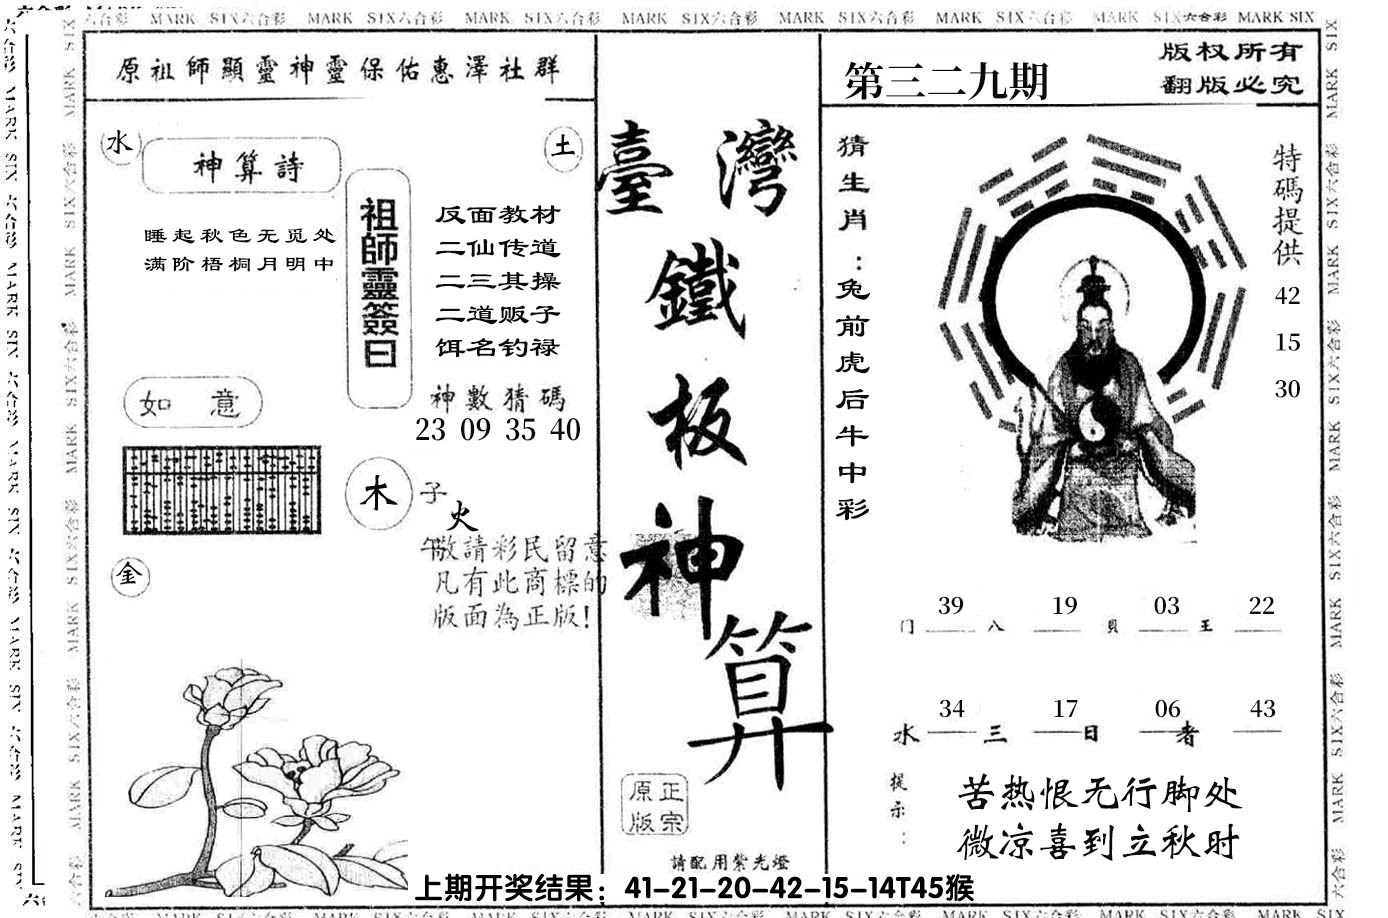 MARK SIX六合彩 MARK SIX六合彩 MARK SIX六合彩 MARK SIX六合彩 MARK SIX六合彩 MARK SIX六合彩 MARK SIX六合彩 MARK SIX
原祖師顯靈神靈保佑惠澤社群
水
神算詩
土
睡起秋色无觅处
满阶梧桐月明中
祖師靈簽曰
反面教材
二仙传道
二三其操
二道贩子
饵名钓禄
神數猜碼
23 09 35 40
如意
木
子
火
午
敬請彩民留意
凡有此商標的
版面為正版!
金
臺灣
鐵
板
神
算
正宗
原版
請配用紫光燈
第三二九期
版权所有
翻版必究
猜生肖:兔前虎后牛中彩
特碼提供
42
15
30
39 19 03 22
门 八 贝 王
34 17 06 43
水 三 日 者
提示:
苦热恨无行脚处
微凉喜到立秋时
上期开奖结果：41-21-20-42-15-14T45猴